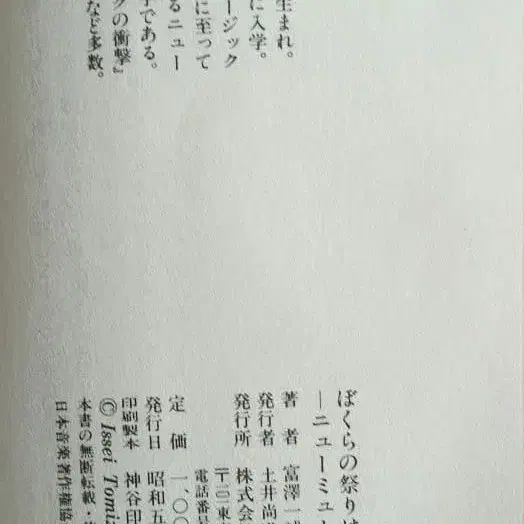 生まれ。
に入学。
ージック
に至って
るニュー
手である。
クの衝撃』
など多数。
ぼくらの祭りは
―ニューミュー
著者 富澤一誠
発行者 土井尚
発行所 株式会
〒一〇二東
電話番号
定価 一、〇〇
発行日 昭和五
印刷製本 神谷印
© Issei Tomiz
本書の無断転載・
日本音楽著作権協